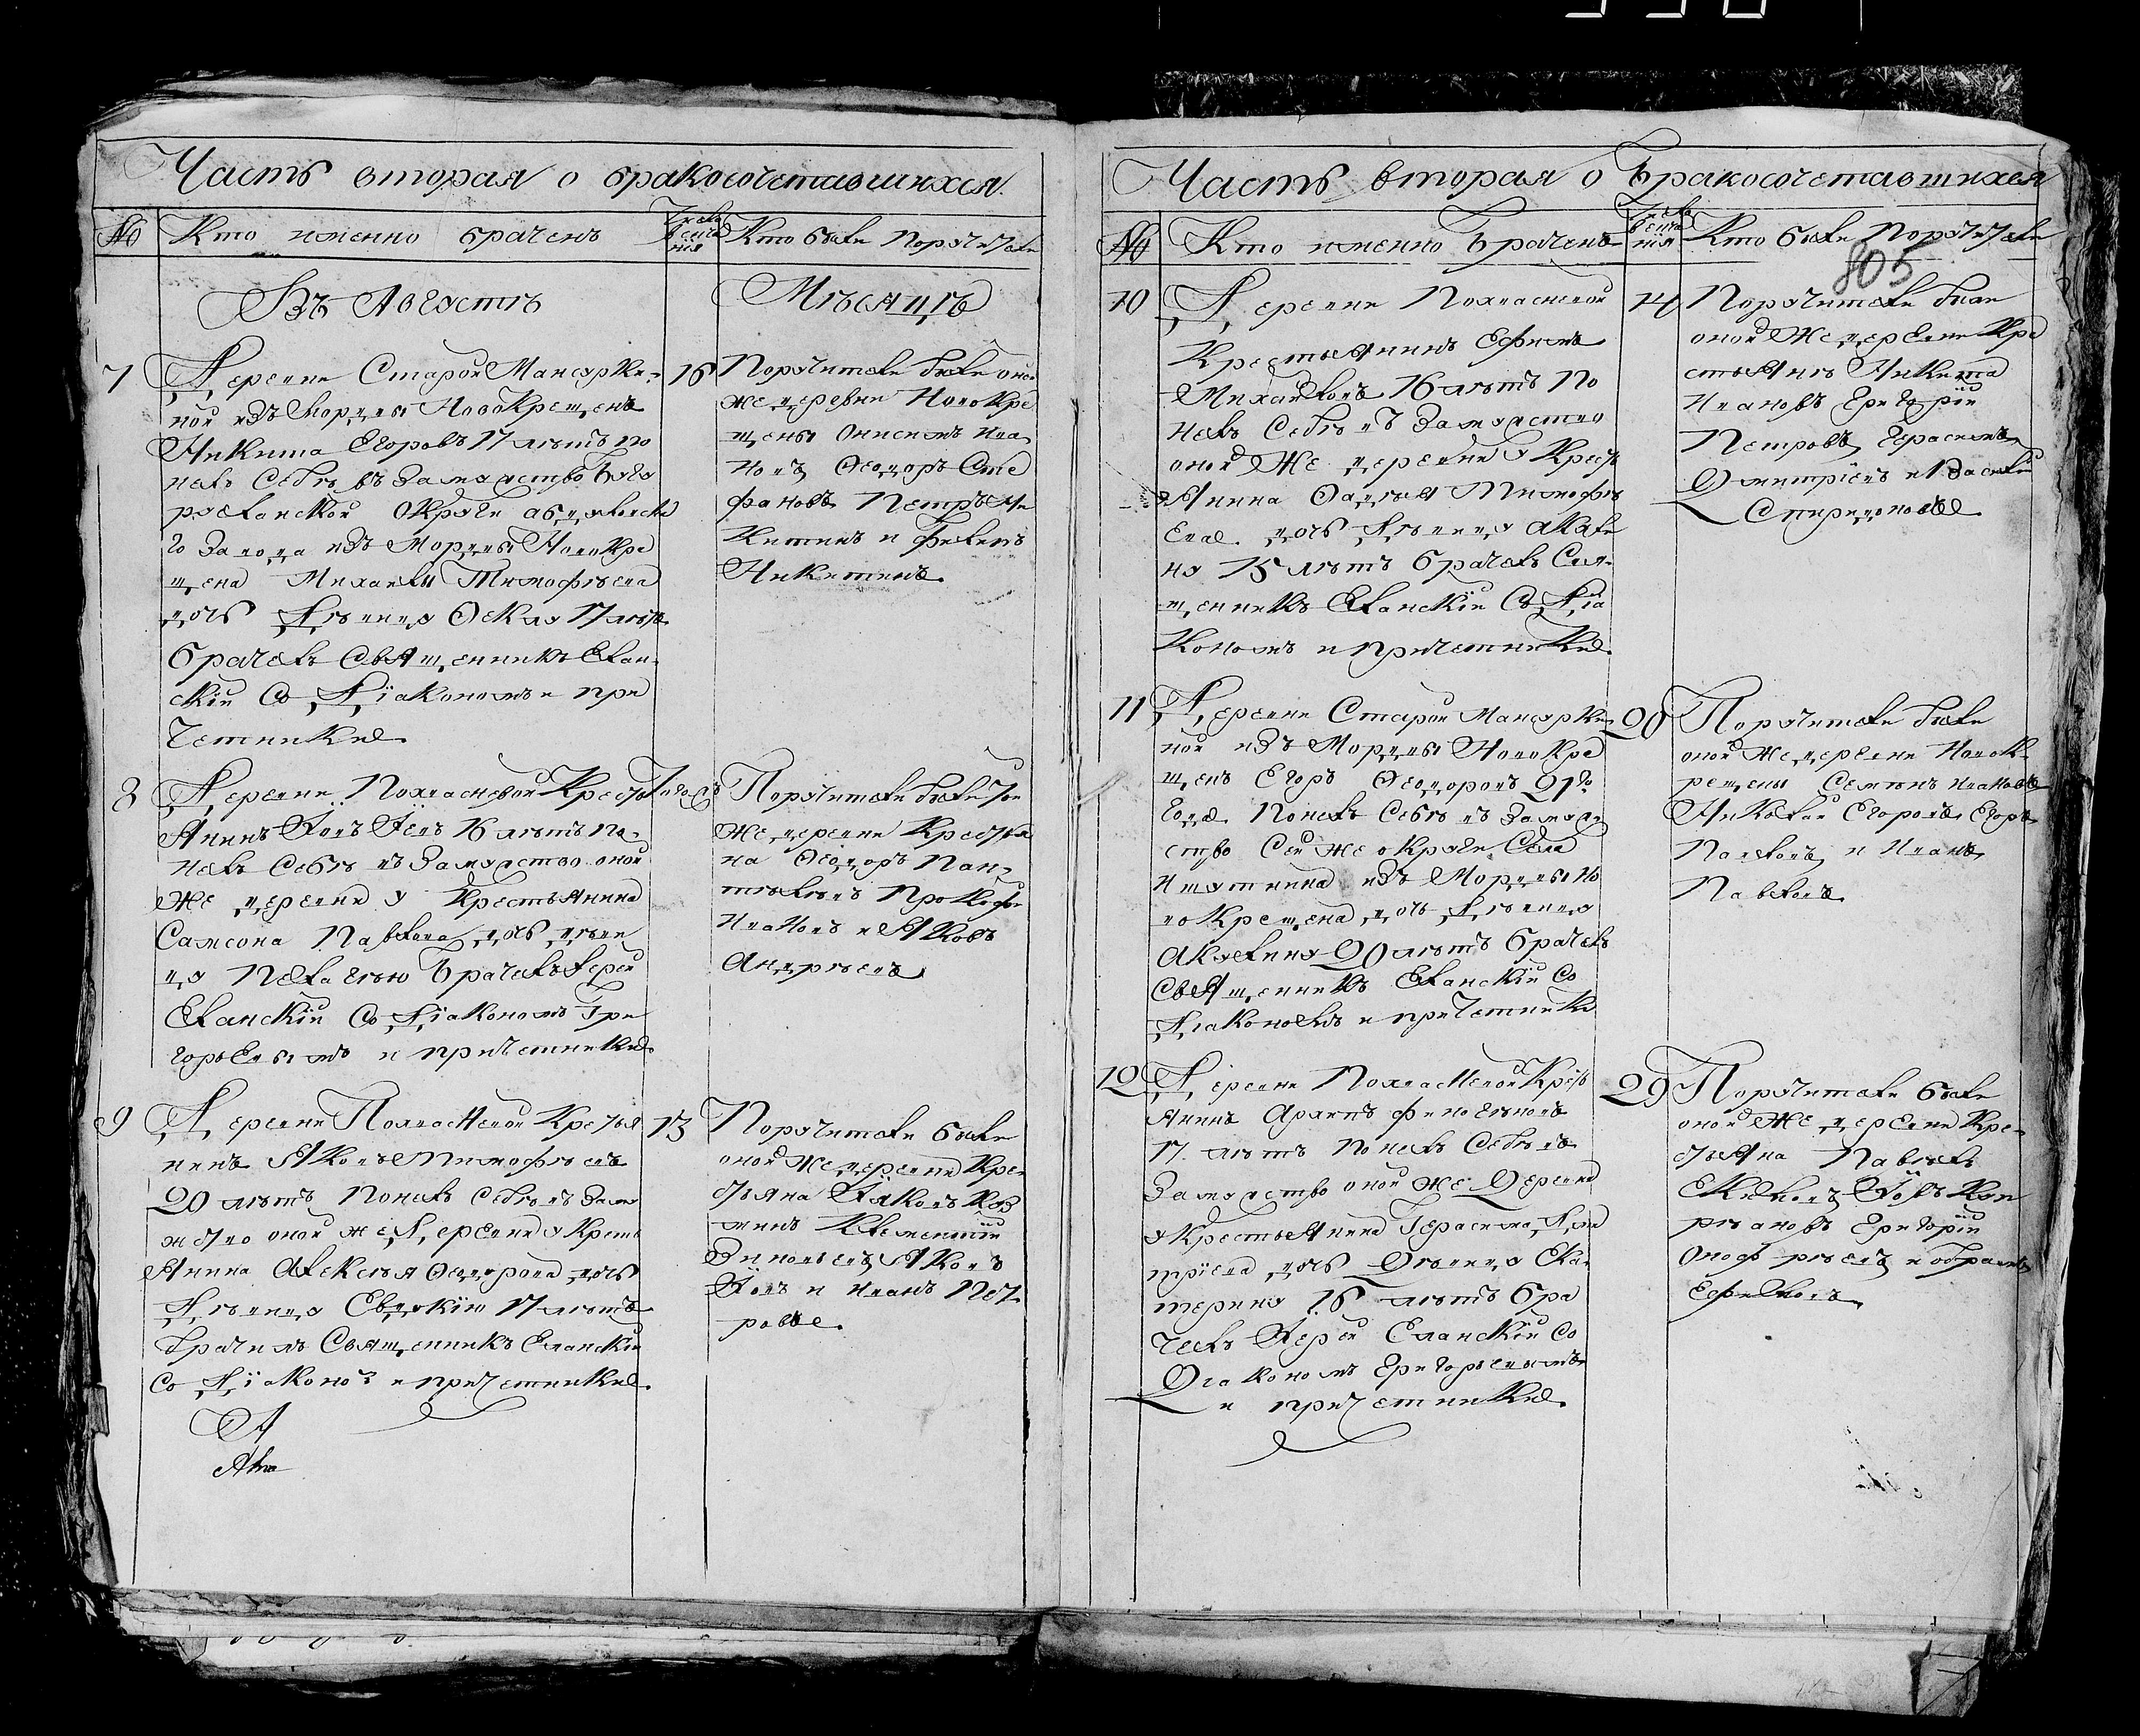 Часть вторая о бракосочетавшихся.
№ Кто именно брачены Числа венчания Кто были Поручители
Въ Августѣ Мѣсяцѣ
7
Деревни Старой Мансурки-
ной изъ Мордвы Новокрещенъ
Никита Егоровъ 17 лѣтъ по
нелъ Себѣ въ Замужство Бугу
русланской Округи
го Завода изъ Мордвы Новокре
щена Михаилы Тимофѣева
дочь Дѣвицу Феклу 17 лѣтъ
брачелъ Священникъ Елан
скій Со Діакономъ и При
четники
16
Поручители были оной
же деревни Новокре
щены Онисимъ Ива
новъ Феодоръ Сте
фановъ Петръ Ни
китинъ и Филипъ
Никитинъ.
8
Деревни Похвисневой Кресть
Анинъ 16 лѣтъ по-
нелъ Себѣ въ Замужство оной
же деревни у Крестьянина
Самсона Павлова дочь дѣви
цу Пелагѣю Брачелъ Іерей
Еланскій Со Діакономъ Гри
горьевымъ и причетники
того же
Поручители были той
же деревни Крестья
на Феодоръ Пан-
тѣлѣевъ Прокофій
Ивановъ и Яковъ
Андрѣевъ
9
Деревни Похвисневой Крестья
нинъ Яковъ Тимофѣевъ
20 лѣтъ Понелъ Себѣ въ Заму
жство оной же Деревни у Кресть
Янина Алексѣя Феодорова дочь
Дѣвицу Евдокію 17 лѣтъ
брачилъ Священникъ Еланскій
Со Діакономъ и причетники.
13
Поручители были
оной же деревни Кре
стьяна Яковъ Коз
минъ Клементій
Зиновьевъ Яковъ
и Иванъ Пет
ровы.
Часть вторая о Бракосочетавшихся
№ Кто именно Брачены Числа венчания Кто были Поручители
805
10
Деревни Похвисневой
Крестьянинъ Ефимъ
Михайловъ 16 лѣтъ По
нелъ Себѣ въ Замужство
оной Же деревни у Кресть
янина Фадѣя Тимофѣ
ева дочь Дѣвицу Акили
ну 15 лѣтъ брачелъ Свя-
щенникъ Еланскій Со Діа
кономъ и причетники
14
Поручители были
оной Же деревни Кре
стьянѣ Никита
Ивановъ Григорій
Петровъ Герасимъ
Дмитріевъ и Василій
Спиридоновы
11
Деревни Старой Мансурки
ной изъ Мордвы Новокре
щенъ Егоръ Феодоровъ 21го
года Понелъ Себѣ въ Замуж
ство Сей же округи Села
Ишуткина изъ Мордвы Но
вокрещена дочь Дѣвицу
Акулину 20 лѣтъ брачелъ
Священникъ Еланскій Со
Діакономъ и причетники
20
Поручители были
оной Же деревни Новок-
рещены Семенъ Ивановъ
Николай Егоровъ Егоръ
Павловъ и Иванъ
Павловъ.
12
Деревни Похвисневой Кресть
Янинъ Архипъ
17 лѣтъ Понелъ Себѣ въ
Замужство оной же Деревни
у Крестьянина Герасима Дми
тріева дочь Дѣвицу Ека
терину 16 лѣтъ бра
челъ Іерей Еланскій Со
Діакономъ Григорьевымъ
и причетники
29
Поручители были
оной Же деревни Кре-
стьяна Павелъ
Григорій
и
Ефимовъ